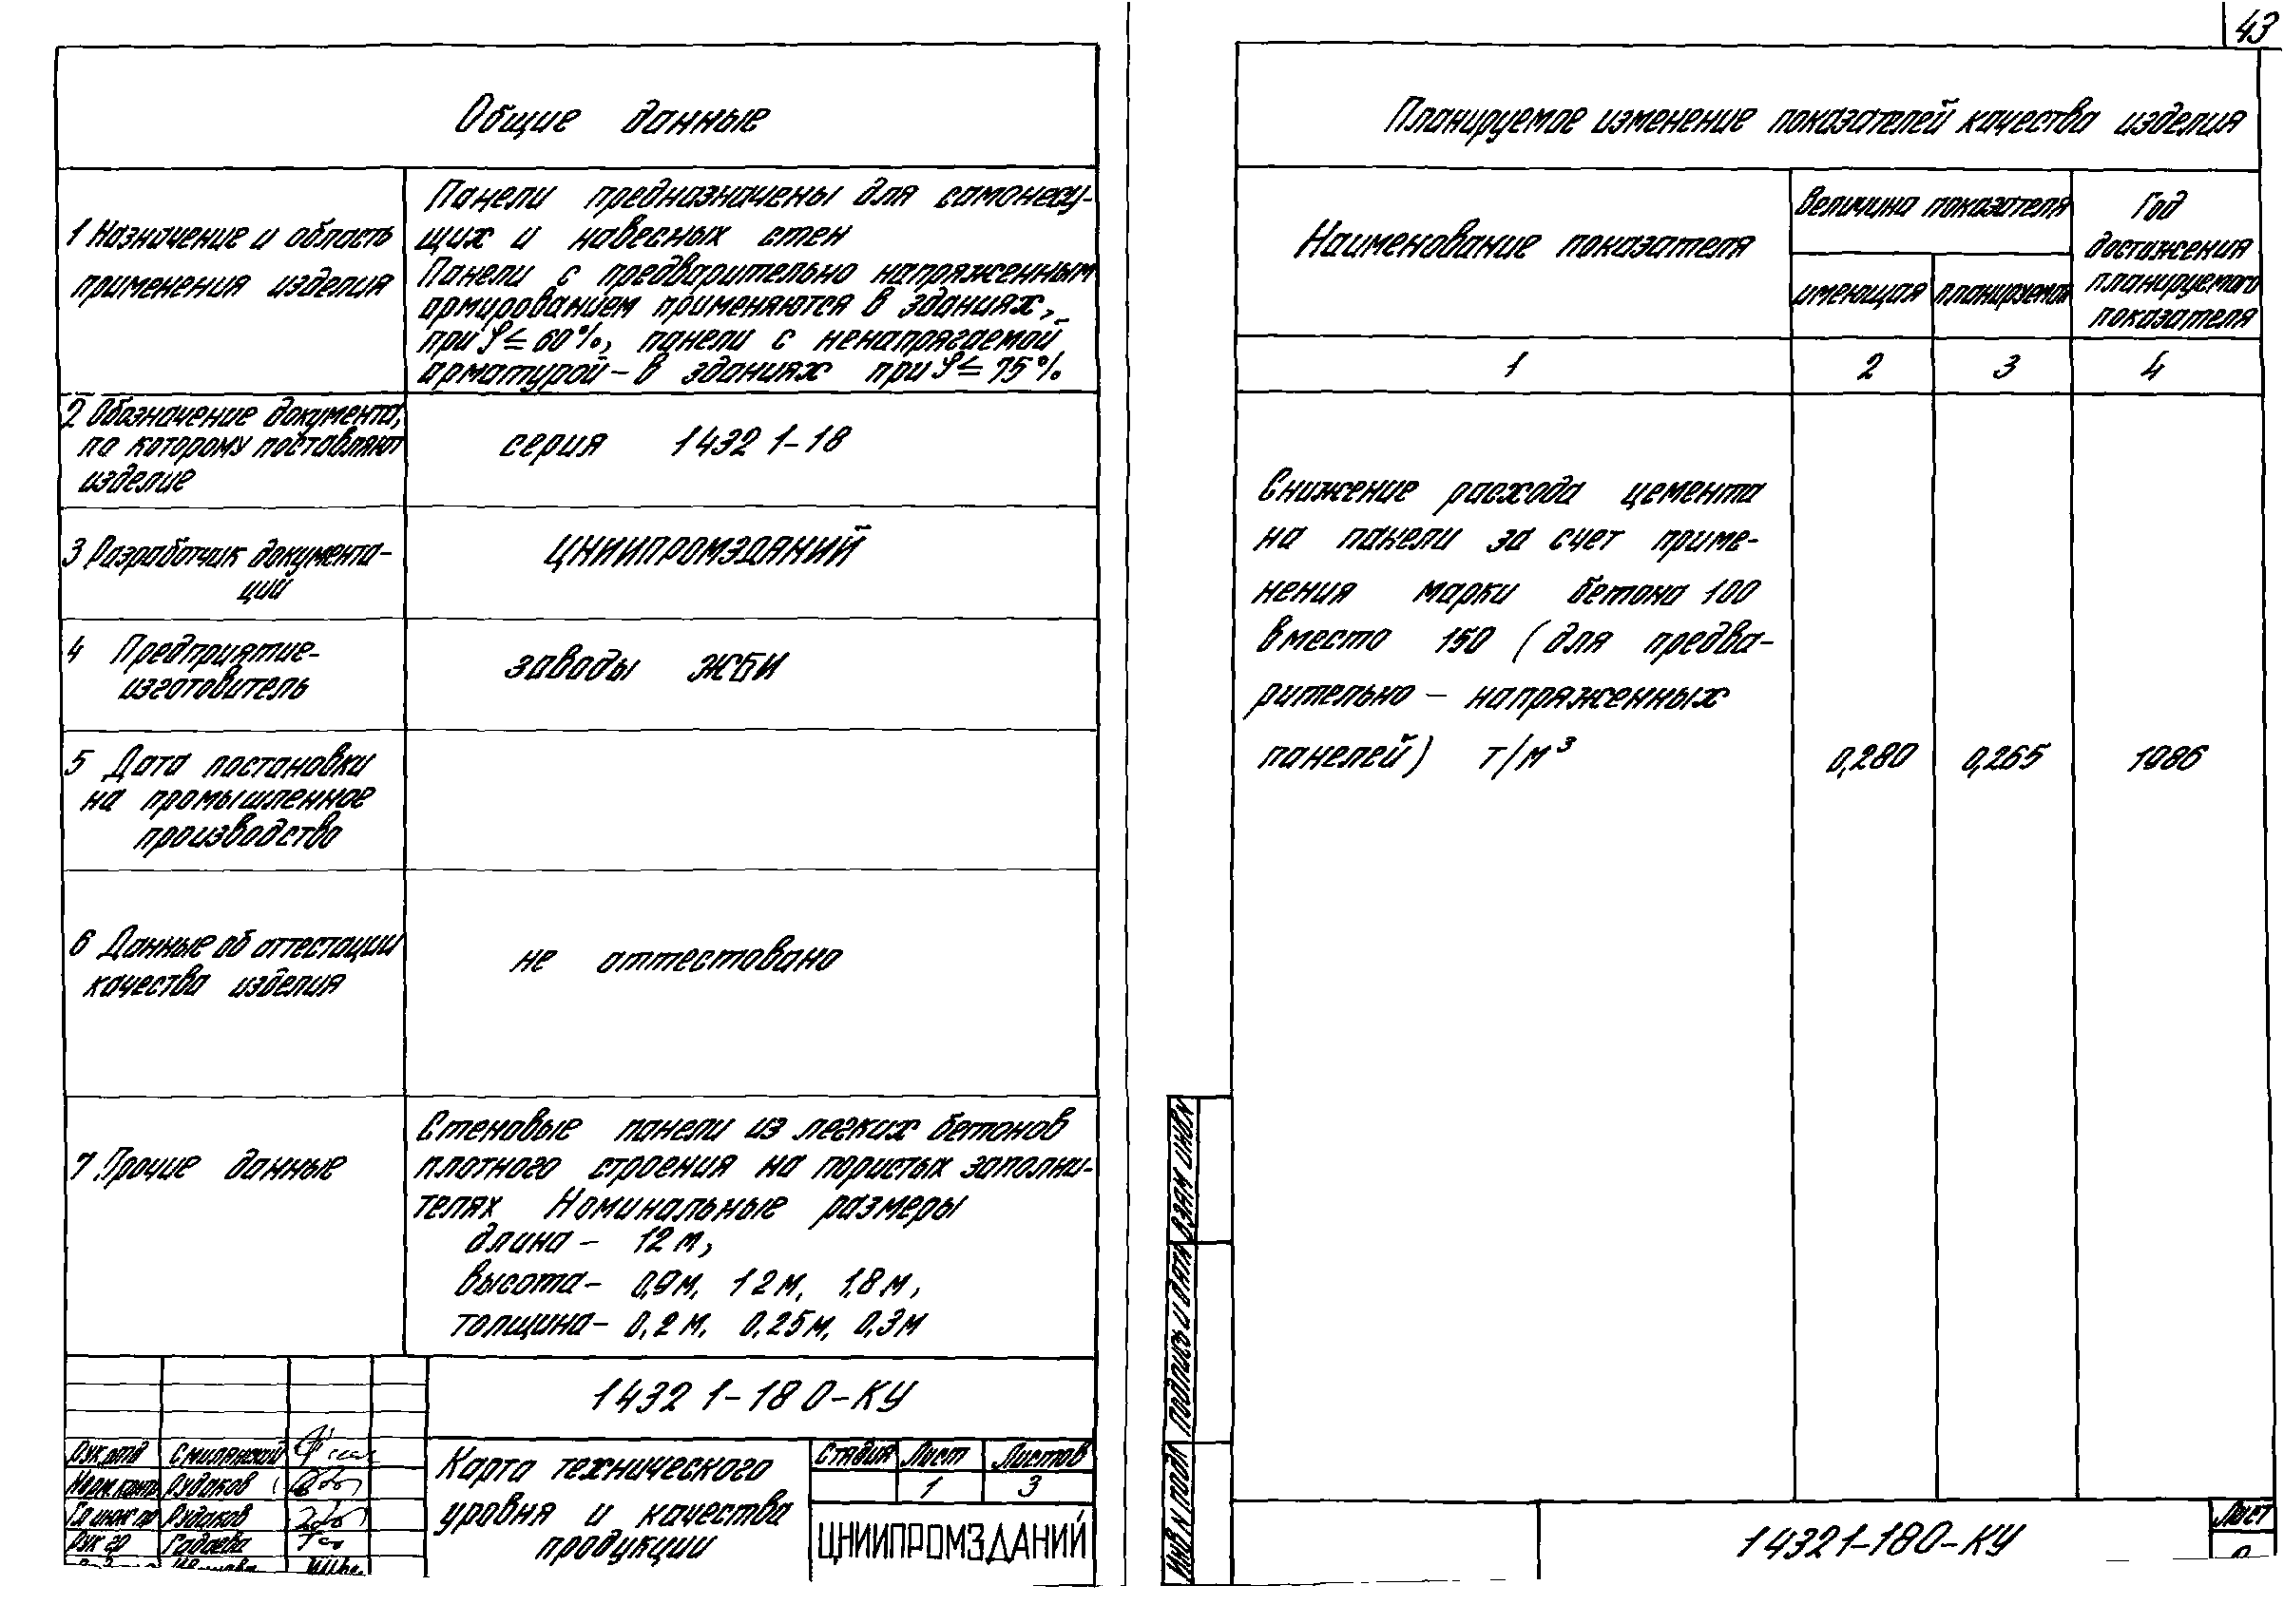 43
Общие данные
1 Назначение и область
применения изделия
Панели предназначены для самонесу-
щих и навесных стен
Панели с предварительно напряженным
армированием применяются в зданиях,
при φ ≤ 60%, панели с ненапрягаемой
арматурой – в зданиях при φ ≤ 75%
2 Обозначение документа,
по которому поставляют
изделие
серия 1432 1-18
3 Разработчик документа-
ции
ЦНИИПРОМЗДАНИЙ
4 Предприятие-
изготовитель
заводы ЖБИ
5 Дата постановки
на промышленное
производство
6 Данные об аттестации
качества изделия
не аттестовано
7 Прочие данные
Стеновые панели из легких бетонов
плотного строения на пористых заполни-
телях Номинальные размеры
длина – 12 м,
высота – 0,9 м, 1 2 м, 1,8 м,
толщина – 0,2 м, 0,25 м, 0,3 м
1432 1-18 0-КУ
Рук отд Смилянский
Норм. контр Рудаков
Гл инж пр Рудаков
Рук гр Гадаева
Карта технического
уровня и качества
продукции
Стадия Лист Листов
1 3
ЦНИИПРОМЗДАНИЙ
Планируемое изменение показателей качества изделия
Наименование показателя
Величина показателя
имеющая планируемая
Год
достижения
планируемого
показателя
1 2 3 4
Снижение расхода цемента
на панели за счет приме-
нения марки бетона 100
вместо 150 (для предва-
рительно – напряженных
панелей) т/м³ 0,280 0,265 1986
ВЗАМ ИНВ N
ПОДПИСЬ И ДАТА
ИНВ N ПОДЛ
1432 1-18 0-КУ
Лист